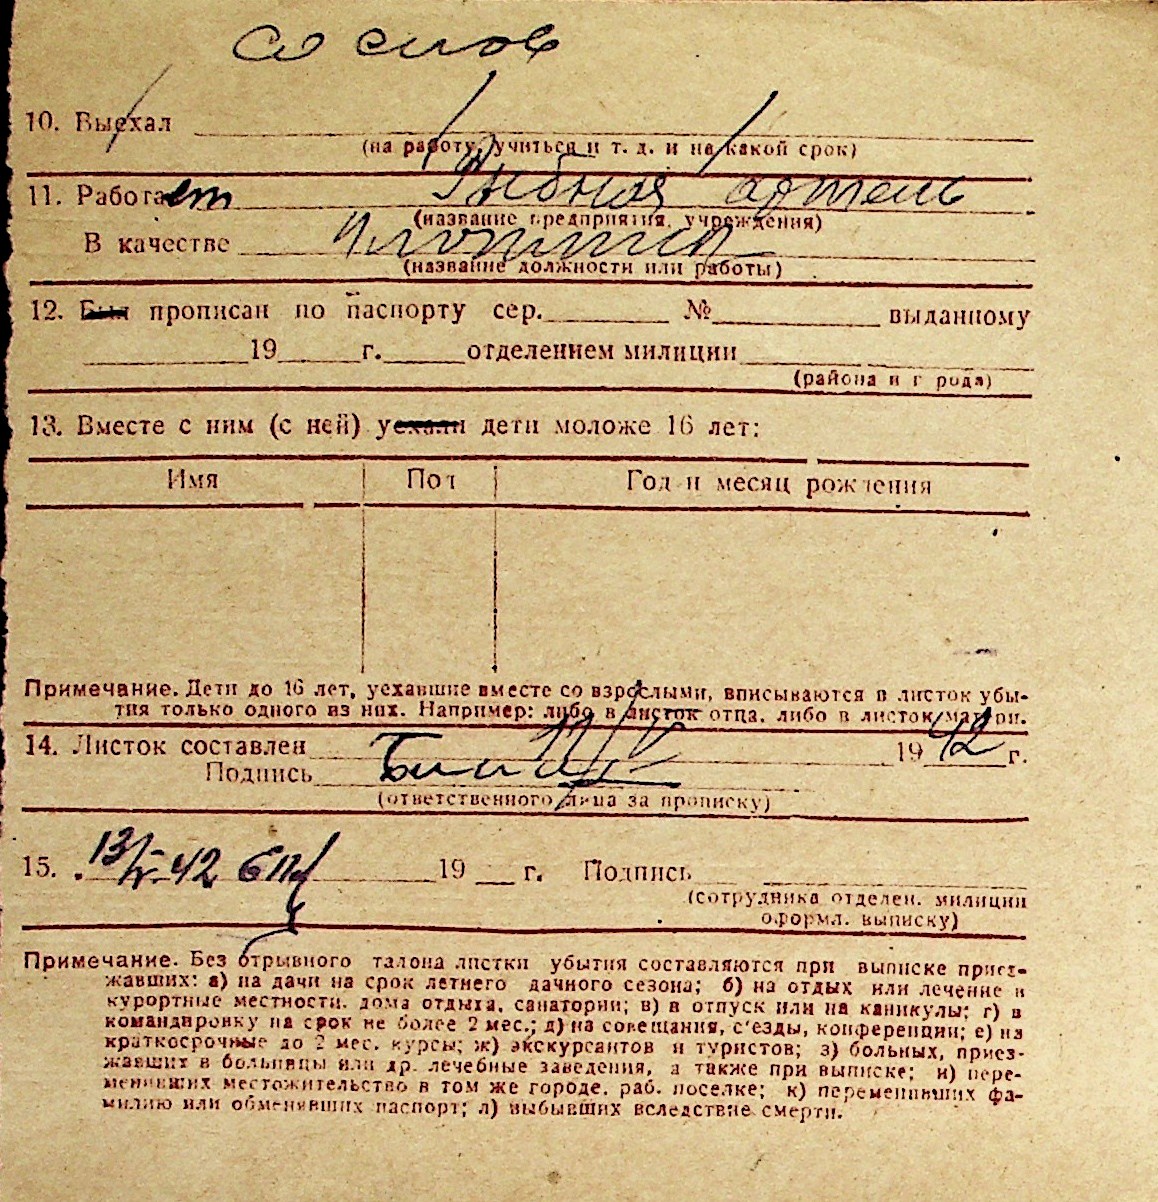 со слов
10. Выехал
(на работу, учиться и т. д. и на какой срок)
11. Работает Рыбная артель
(название предприятия, учреждения)
В качестве плотник
(название должности или работы)
12. Был прописан по паспорту сер. № выданному
19 г. отделением милиции
(района и города)
13. Вместе с ним (с ней) уехали дети моложе 16 лет:
Имя Пол Год и месяц рождения
Примечание. Дети до 16 лет, уехавшие вместе со взрослыми, вписываются в листок убы-
тия только одного из них. Например: либо в листок отца, либо в листок матери.
14. Листок составлен 1942 г.
Подпись
(ответственного лица за прописку)
15. 13/V-42 19 г. Подпись
(сотрудника отделен. милиции
оформл. выписку)
Примечание. Без отрывного талона листки убытия составляются при выписке приез-
жавших: а) на дачи на срок летнего дачного сезона; б) на отдых или лечение в
курортные местности, дома отдыха, санатории; в) в отпуск или на каникулы; г) в
командировку на срок не более 2 мес.; д) на совещания, с'езды, конференции; е) на
краткосрочные до 2 мес. курсы; ж) экскурсантов и туристов; з) больных, приез-
жавших в больницы или др. лечебные заведения, а также при выписке; и) пере-
менивших местожительство в том же городе, раб. поселке; к) переменивших фа-
милию или обменивших паспорт; л) выбывших вследствие смерти.